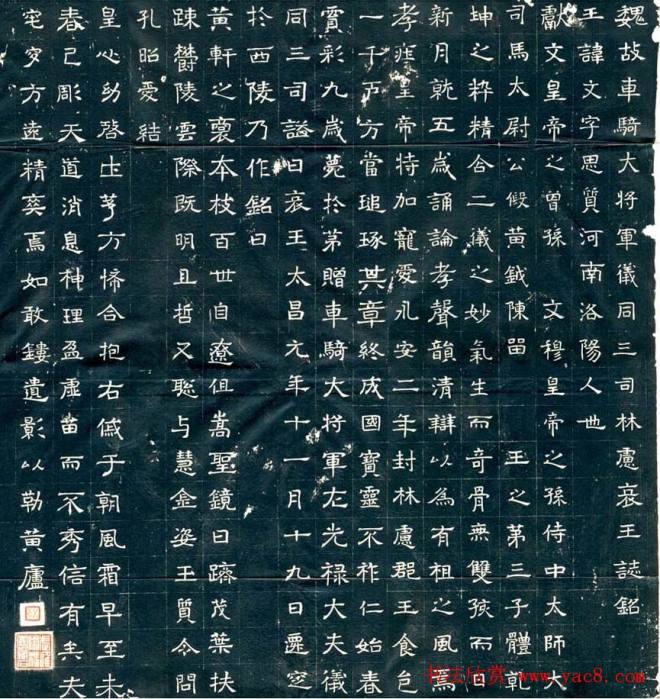 魏故車騎大將軍儀同三司林慮哀王誌銘
王諱文字思質河南洛陽人也
獻文皇帝之曾孫 文穆皇帝之孫侍中太師大
司馬太尉公假黃鉞陳留 王之第三子體乾
坤之粹精合二儀之妙氣生而奇骨無雙孩而日
新月就五歲誦論孝聲韻清辯以為有祖之風焉
孝莊皇帝特加寵愛永安二年封林慮郡王食邑
一千戶方當追琢其章終成國寶靈不祚仁始春
彩九歲薨於第贈車騎大將軍左光祿大夫儀
同三司諡曰哀王太昌元年十一月十九日遷窆
於西陵乃作銘曰
黃軒之裔本枝百世自遼徂嵩聖鏡日躋茂葉扶
踈鬱陵雲際既明且哲又聡与慧金姿玉質令問
孔昭愛結
皇心幼啓土茅方悕合抱右戚于朝風霜早至未
春已彫天道消息神理盈虛苗而不秀信有矣夫
宅穸方遠精爽焉如敢鏤遺影以勒黃廬
书法欣赏 www.yac8.com